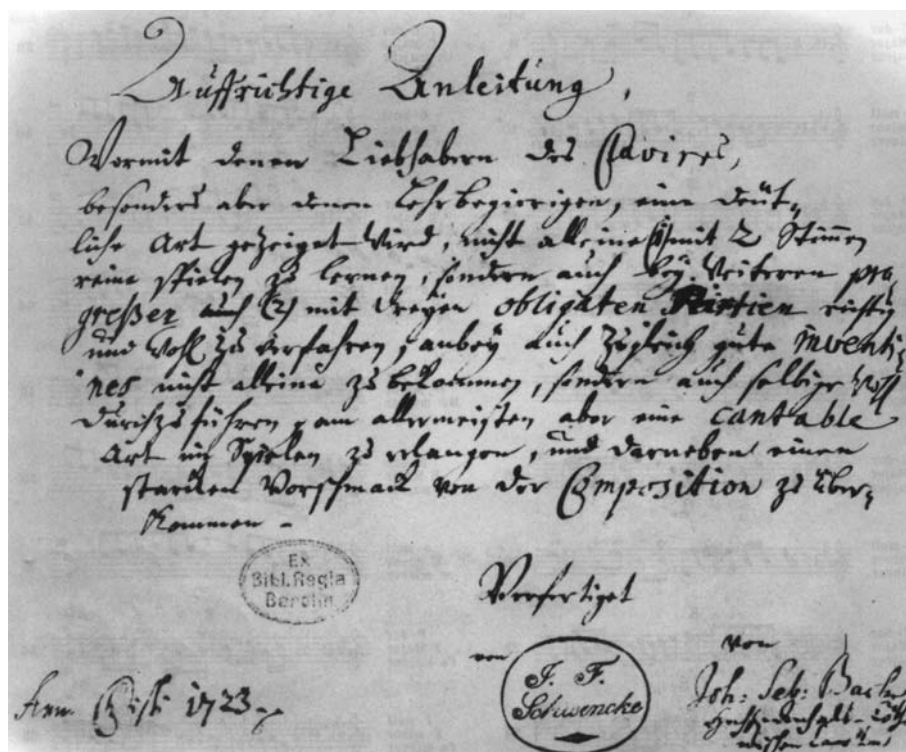 Auffrichtige Anleitung,
Wormit denen Liebhabern des Clavires,
besonders aber denen Lehrbegierigen, eine deüt-
liche Art gezeiget wird, nicht alleine (1) mit 2 Stimen
reine spielen zu lernen, sondern auch bey weiteren pro-
greßen auch (2) mit dreyen obligaten Partien richtig
und wohl zu verfahren, anbey auch zugleich gute inventi-
ones nicht alleine zu bekommen, sondern auch selbige wohl
durchzuführen, am allermeisten aber eine cantable
Art im Spielen zu erlangen, und darneben einen
starcken Vorschmack von der Composition zu über-
kommen.
Ex
Bibl. Regia
Berolin.
Verfertiget
von
J. F.
Schwencke
von
Joh: Seb: Bach
Anno Christi 1723.